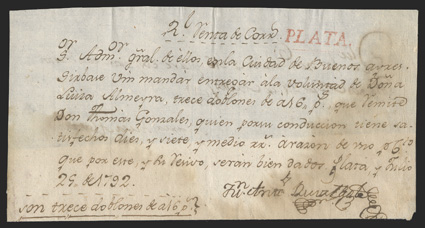 Rl. Renta de Corrs. PLATA.
Sor. Admor. gral. de ellos en la Ciudad de Buenos ayres.
Sirbase Vm mandar entregar á la voluntad de Doña
Luisa Almeyra, trece doblones de a 16 ps. que remite
Don Thomas Gonzales, quien por su conduccion tiene sa-
tisfechos diez, y siete, y medio rr. á razon de uno p%
que por este, y su recivo, serán bien dados Plata y Julio
29, de 1792.
son trece doblones de a 16 ps.